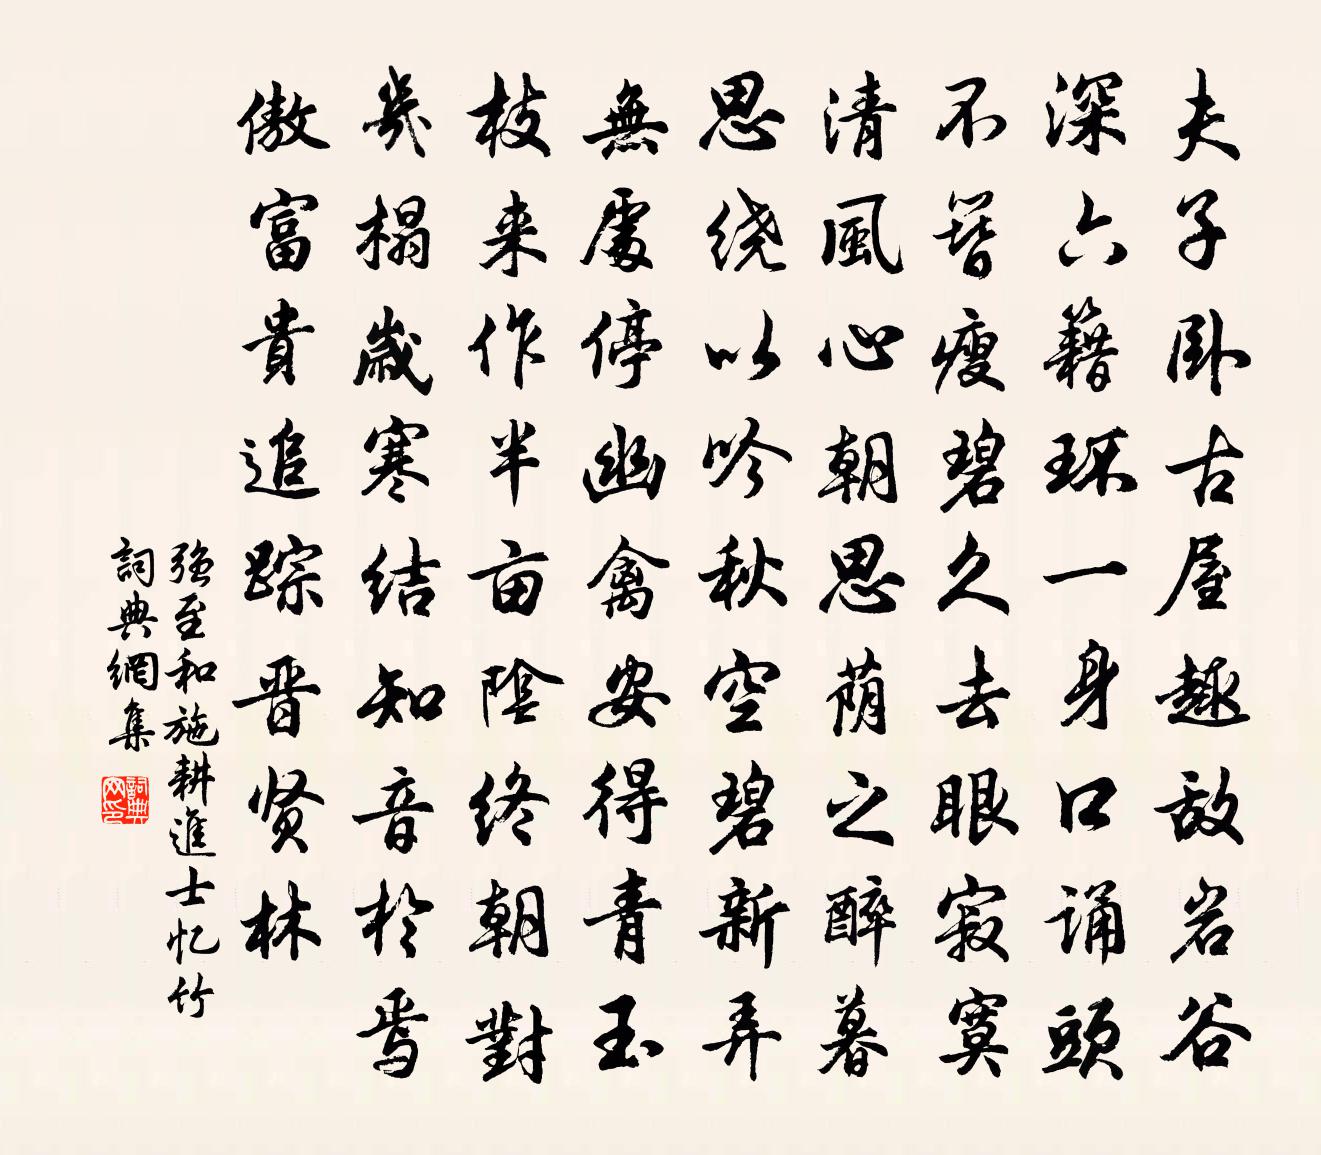 夫子卧古屋趣敌岩谷
深六籍环一身口诵頭
不簪瘦碧久去眼寂寞
清風心朝思荫之醉暮
思绕以吟秋空碧新弄
無處停幽禽安得青玉
枝来作半亩陰终朝對
幾榻歲寒结知音於焉
傲富貴追踪晋贤林
强至和施耕進士忆竹
詞典網集
詞典网印